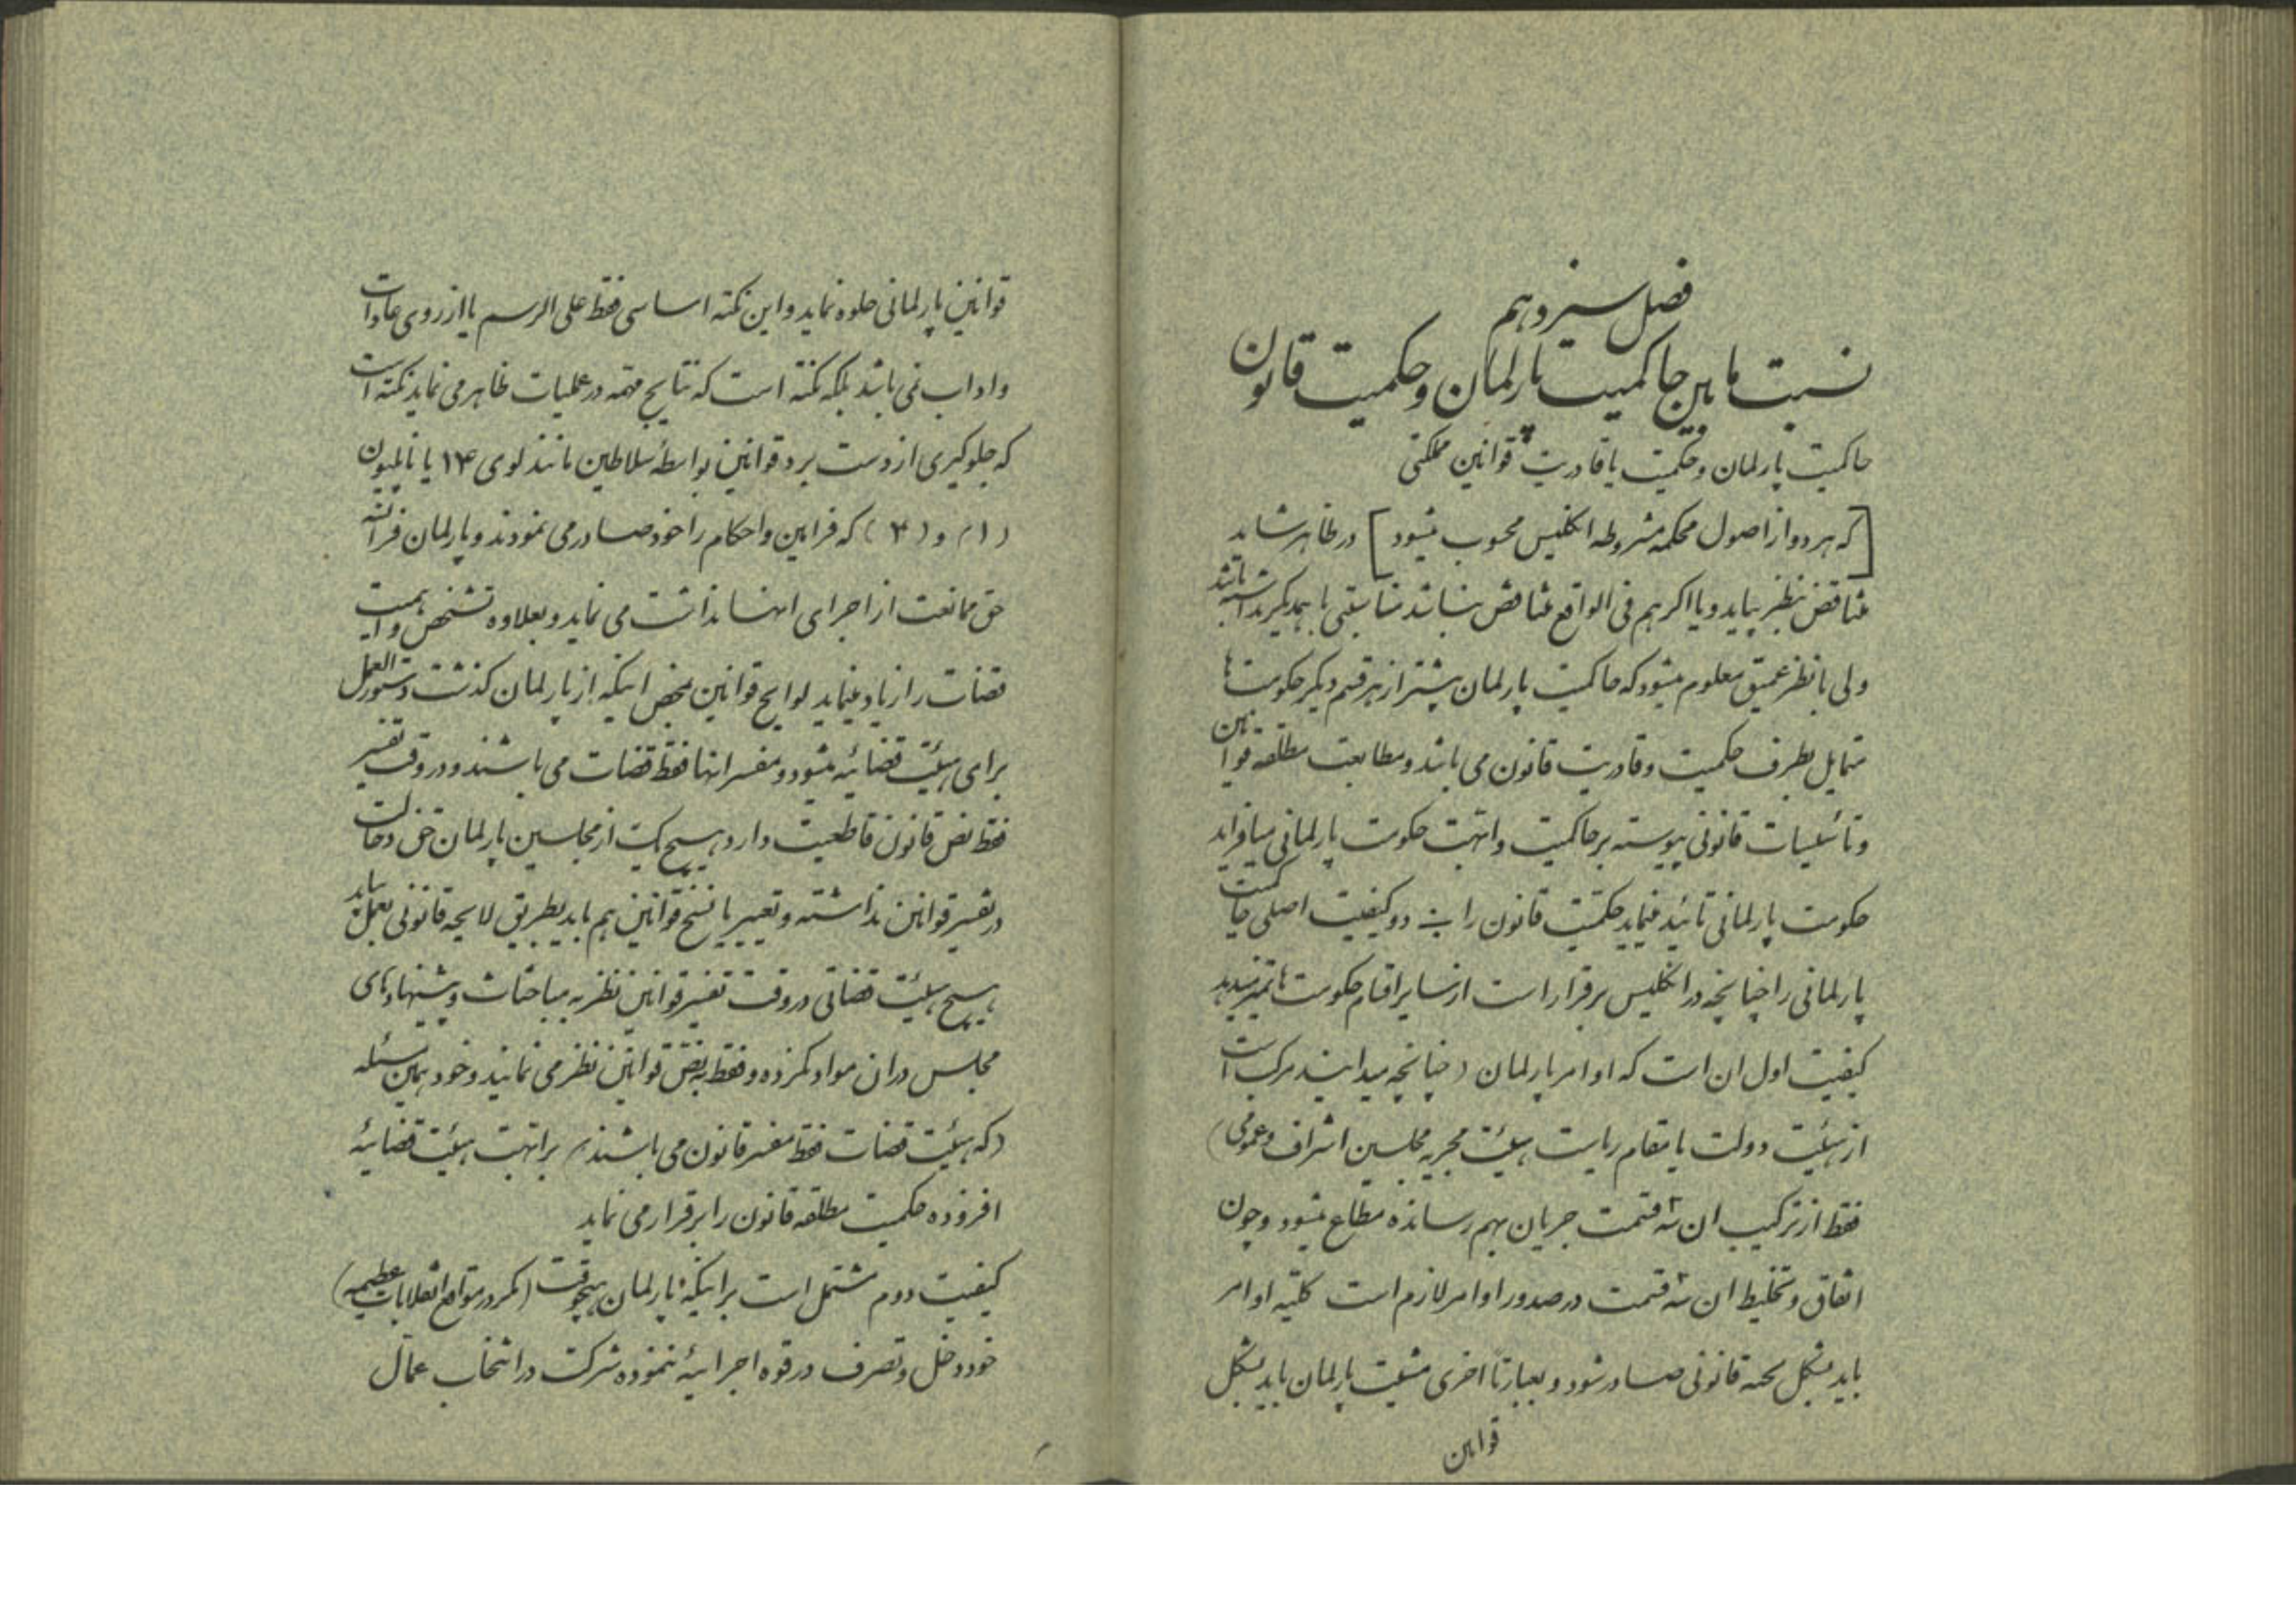 فصل سیزدهم
نسبت مابین حاکمیت پارلمان و حکمیت قانون
حاکمیت پارلمان و حکمیت یا قادریت قوانین مملکتی
[که هر دو از اصول محکمه مشروطه انگلیس محسوب میشود] در ظاهر شاید
متناقض بنظر بیاید و یا اگر هم فی الواقع متناقض نباشد تناسبتی با همدیگر نداشته باشد
ولی با نظر عمیق معلوم میشود که حاکمیت پارلمان بیشتر از هر قسم دیگر حکومت ها
متمایل بطرف حکمیت و قادریت قانون می باشد و مطابعت مطلقه قوانین
و تأسیسات قانونی پیوسته بر حاکمیت و ابهت حکومت پارلمانی میافزاید
حکومت پارلمانی تائید مینماید حکمیت قانون را دو کیفیت اصلی حاکمیت
پارلمانی را چنانچه در انگلیس برقرار است از سایر اقسام حکومت ها تمیز میدهد
کیفیت اول ان است که اوامر پارلمان (چنانچه میدانید مرکب است
از هیئت دولت یا مقام ریاست هیئت مجریه مجلسین اشراف و عمومی)
فقط از ترکیب ان سه قسمت جریان بهم رسانده مطاع میشود و چون
اتفاق و تخلیط ان سه قسمت در صدور اوامر لازم است کلیه اوامر
باید بشکل لایحه قانونی صادر شود و بعبارتاً اخری مشیت پارلمان باید بشکل
قوانین
قوانین پارلمانی جلوه نماید و این نکته اساسی فقط علی الرسم یا از روی عادات
و اداب نمی باشد بلکه نکته است که نتایج مهمه در عملیات ظاهر می نماید نکته است
که جلوگیری از دست برد قوانین بواسطه سلاطین مانند لوی ۱۴ یا ناپلیون
(۱) و (۳) که فرامین و احکام را خود صادر می نمودند و پارلمان فرانسه
حق ممانعت از اجرای انها نداشت می نماید و بعلاوه تشخص و اهمیت
قضات را زیاد مینماید لوایح قوانین محض اینکه از پارلمان گذشت دستورالعمل
برای هیئت قضائیه میشود و مفسر انها فقط قضات می باشند و در وقت تفسیر
فقط نص قانون قاطعیت دارد هیچ یک از مجلسین پارلمان حق دخالت
در تفسیر قوانین نداشته و تغییر یا نسخ قوانین هم باید بطریق لایحه قانونی بعمل بیاید
هیچ هیئت قضاتی در وقت تفسیر قوانین نظر به مباحثات و پیشنهادهای
مجلس در ان مواد نکرده و فقط به نص قوانین نظر می نمایند و خود همین مسئله
(که هیئت قضات فقط مفسر قانون می باشند) بر ابهت هیئت قضائیه
افزوده حکمیت مطلقه قانون را برقرار می نماید
کیفیت دوم مشتمل است بر اینکه پارلمان هیچوقت (مگر در مواقع انقلابات عظیمه)
خود دخل و تصرف در قوه اجرائیه ننموده شرکت در انتخاب عمال